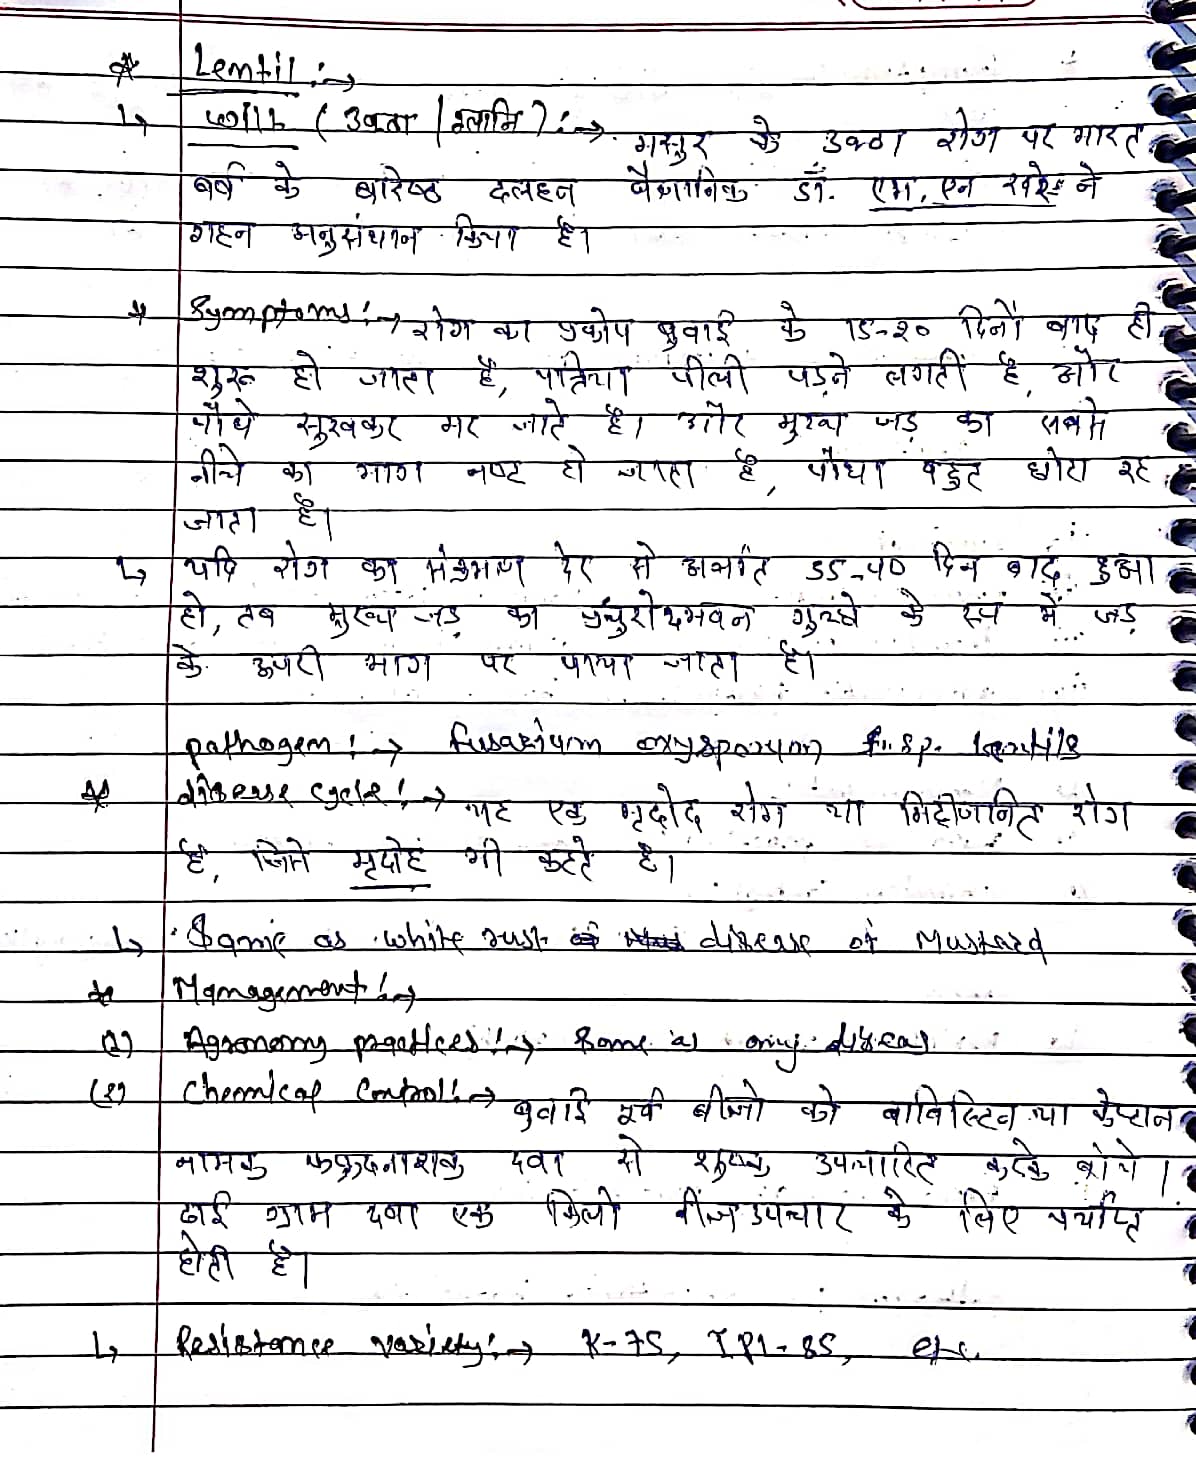 * Lentil :→
↳ Wilt (उकठा / म्लानि) :→ मसूर के उकठा रोग पर भारत
वर्ष के वरिष्ठ दलहन वैज्ञानिक डॉ. एम. एन खरे ने
गहन अनुसंधान किया है।
* Symptoms :→ रोग का प्रकोप बुवाई के 15-20 दिनों बाद ही
शुरू हो जाता है, पत्तिया पीली पड़ने लगतीं है, और
पौधे सूखकर मर जाते है। और मुख्य जड़ का सबसे
नीचे का भाग नष्ट हो जाता है, पौधा बहुत छोटा रह
जाता है।
↳ यदि रोग का संक्रमण देर से अर्थात 35-40 दिन बाद हुआ
हो, तब मुख्य जड़ का गुच्छे के रूप में जड़
के ऊपरी भाग पर पाया जाता है।
pathogen :→ fusarium oxysporum f. sp. lentils
* disease cycle :→ यह एक मृदोद रोग या मिट्टीजनित रोग
है, जिसे मृदोढ़ भी कहते है।
↳ Same as white rust disease of Mustard
* Management :→
(1) Agronomy practices :→ Same as any diseas
(2) Chemical Control :→ बुवाई पूर्व बीजो को बाविस्टिन या केप्टान
नामक फफूदनाशक दवा से शुष्क उपचारित करके बोये।
ढाई ग्राम दवा एक किलो बीज उपचार के लिए पर्याप्त
होती है।
↳ Resistance variety :→ K-75, IPL-85, etc.